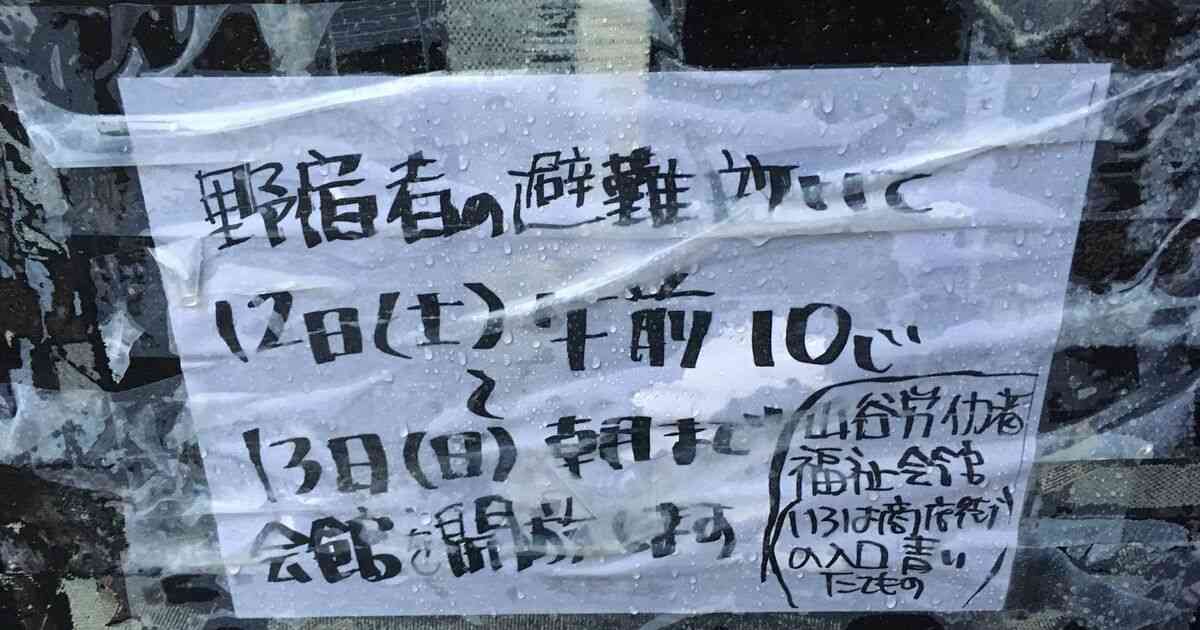 野宿者の避難所として
12日(土)午前10じ
〜
13日(日)朝まで
会館を開放します
山谷労仂者
福祉会館
(いろは商店街
の入口 青い
たてもの)